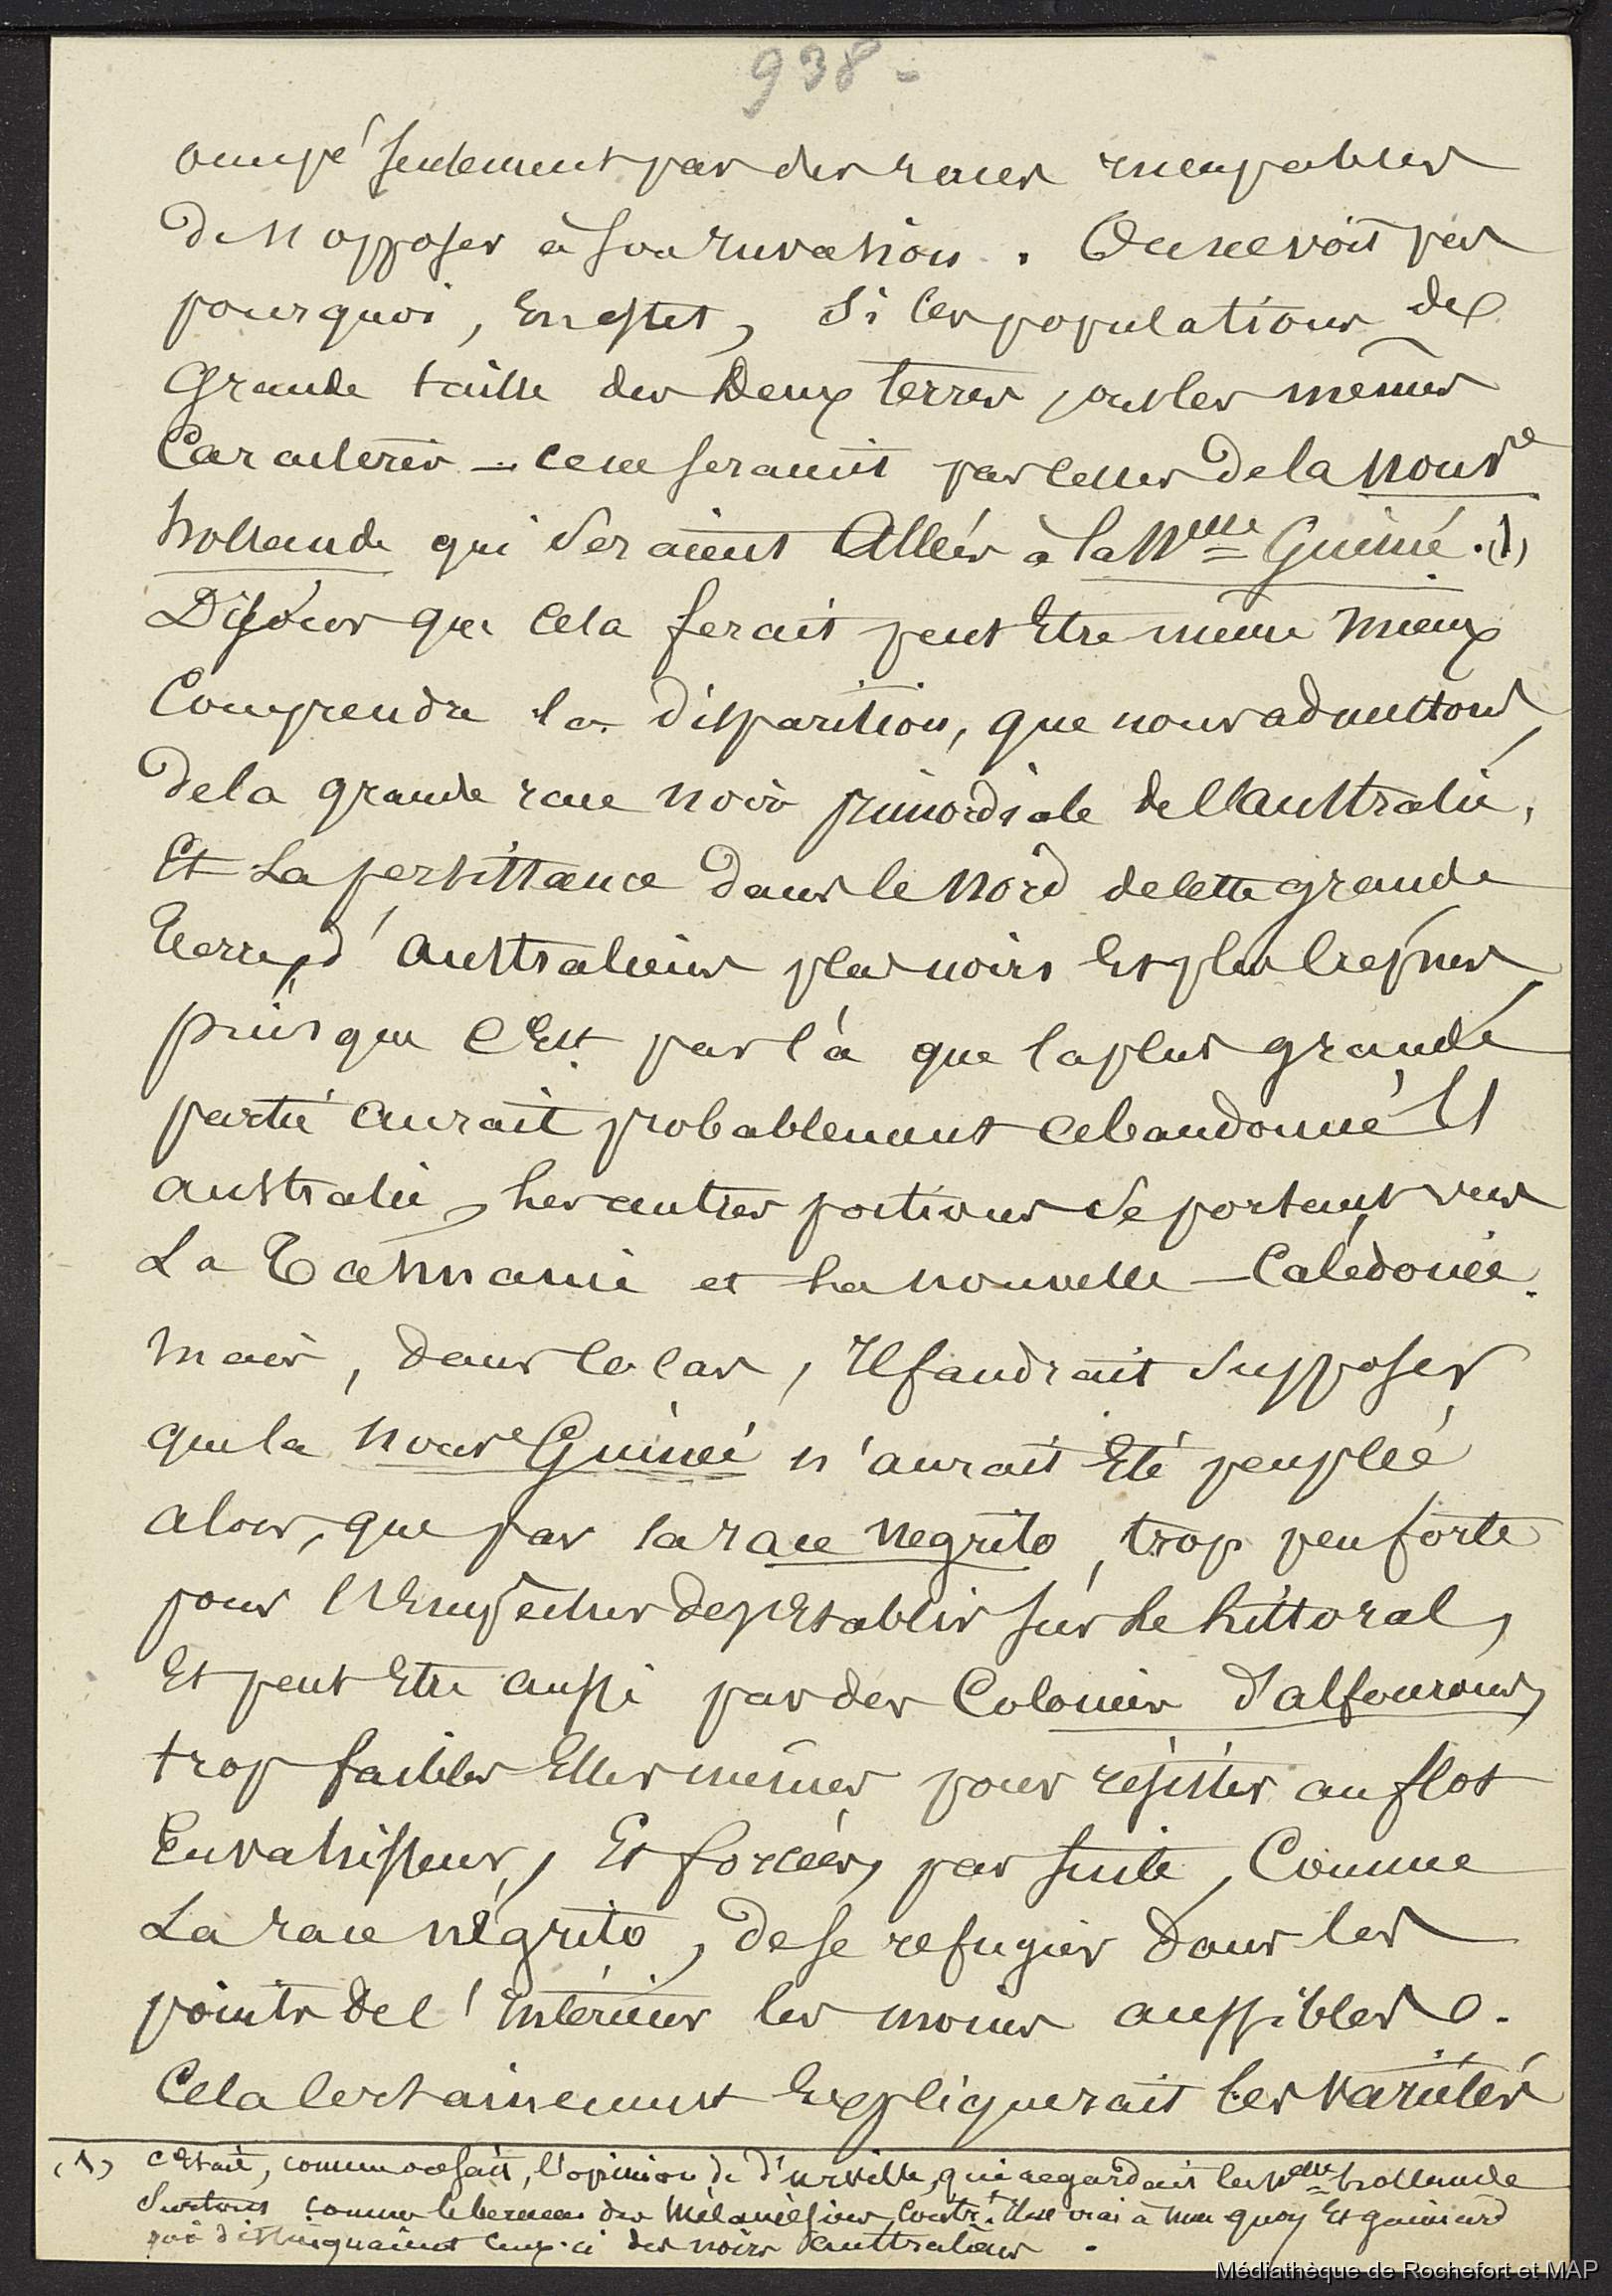 938 -
occupé seulement par des races incapables
de s'opposer à son invasion. On ne voit pas
pourquoi, En effet, Si les populations de
Grande taille des Deux terres ont les mêmes
Caractères — ce ne seraient pas celles de la nouv^e
hollande qui Seraient Allées à la N^elle Guinée.(1)
Disons que Cela ferait peut Etre même mieux
Comprendre la disparition, que nous admettons,
de la grande race noire primordiale de l'Australie,
Et La persistance dans le nord de cette grande
Terre, d'australiens plus noirs Et plus crépus,
puisque C'Est par là que la plus grande
partie aurait probablement abandonné l'
australie, les autres portions Se portant vers
La Tasmanie et la nouvelle - Calédonie.
Mais, dans ce cas, Il faudrait Supposer
que la Nouv^e Guinée n'aurait Eté peuplée
alors, que par la race negrito, trop peu forte
pour l'Empêcher de s'Etablir sur le littoral,
Et peut Etre aussi par des Colonies d'alfourous,
trop faibles Elles mêmes pour résister au flot
Envahisseur, Et forcées, par suite, Comme
La race négrito, de se refugier dans les
points de l'intérieur les moins accessibles.
Cela Certainement Expliquerait les variétés
(1) c'Etait, comme on sait, l'opinion de d'urville, qui regardait la N^elle hollande
Surtout comme le berceau des Mélanésiens, Contr^t. Il est vrai à MM quoy Et gaimard
qui distinguaient ceux-ci des noirs australiens.
Médiathèque de Rochefort et MAP